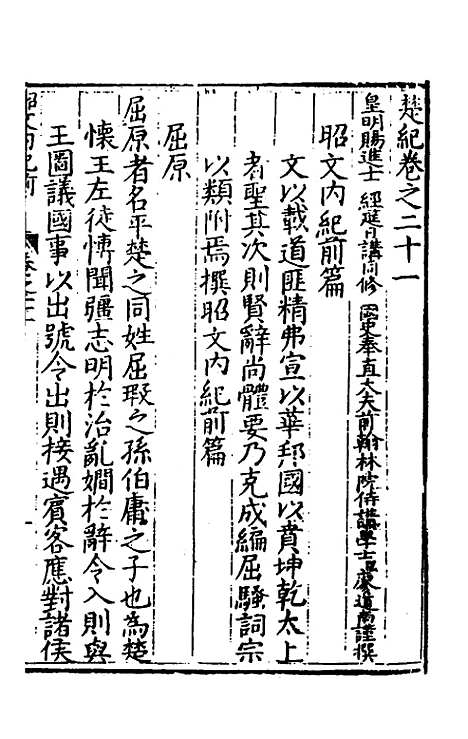 楚紀卷之二十一
皇明賜進士 經筵日講同修 國史奉直大夫前翰林院侍講學士廖道南謹撰
昭文内紀前篇
文以載道匪精弗宣以華邦國以賁坤乾太上
者聖其次則賢辭尚體要乃克成編屈騷詞宗
以類附焉撰昭文内紀前篇
屈原
屈原者名平楚之同姓屈瑕之孫伯庸之子也為楚
懷王左徒愽聞彊志明於治亂嫺於辭令入則與
王圖議國事以出號令出則接遇賓客應對諸侯